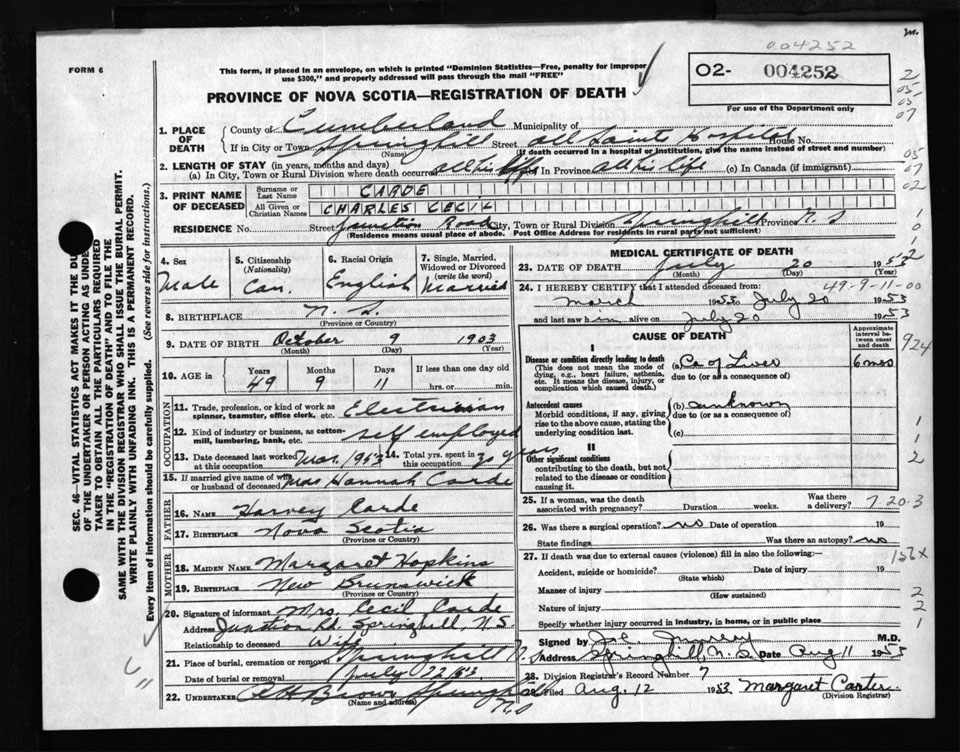 004252
FORM 6
This form, if placed in an envelope, on which is printed "Dominion Statistics—Free, penalty for improper use $300," and properly addressed will pass through the mail "FREE"
02- 004252
For use of the Department only
PROVINCE OF NOVA SCOTIA—REGISTRATION OF DEATH
2
05
03
07
1. PLACE OF DEATH
County of Cumberland Municipality of
If in City or Town Springhill Street All Saints Hospital House No.
(Name) (If death occurred in a hospital or institution, give the name instead of street and number)
2. LENGTH OF STAY (in years, months and days)
(a) In City, Town or Rural Division where death occurred all his life (b) In Province all his life (c) In Canada (if immigrant)
05
07
02
3. PRINT NAME OF DECEASED
Surname or Last Name CARDE
All Given or Christian Names CHARLES CECIL
RESIDENCE No. Street Junction Road City, Town or Rural Division Springhill Province N.S
(Residence means usual place of abode. Post Office Address for residents in rural parts not sufficient)
4. Sex Male
5. Citizenship (Nationality) Can.
6. Racial Origin English
7. Single, Married, Widowed or Divorced (write the word) Married
8. BIRTHPLACE N.S.
(Province or Country)
9. DATE OF BIRTH October 9 1903
(Month) (Day) (Year)
10. AGE in Years 49 Months 9 Days 11 If less than one day hrs. or min.
OCCUPATION
11. Trade, profession, or kind of work as spinner, teamster, office clerk, etc. Electrician
12. Kind of industry or business, as cotton-mill, lumbering, bank, etc. self employed
13. Date deceased last worked at this occupation Mar. 1953
14. Total yrs. spent in this occupation 30 years
15. If married give name of wife or husband of deceased Mrs Hannah Carde
FATHER
16. NAME Harvey Carde
17. BIRTHPLACE Nova Scotia
(Province or Country)
MOTHER
18. MAIDEN NAME Margaret Hopkins
19. BIRTHPLACE New Brunswick
(Province or Country)
20. Signature of informant Mrs. Cecil Carde
Address Junction Rd. Springhill, N.S
Relationship to deceased Wife
21. Place of burial, cremation or removal Springhill N.S
Date of burial or removal July 22/53
22. UNDERTAKER Brown Springhill N.S
(Name and address)
MEDICAL CERTIFICATE OF DEATH
23. DATE OF DEATH July 20 1953
(Month) (Day) (Year)
49-9-11-00
24. I HEREBY CERTIFY that I attended deceased from:
March 1953 to July 20 1953
and last saw him alive on July 20 1953
CAUSE OF DEATH
Approximate interval between onset and death
924
I
Disease or condition directly leading to death (This does not mean the mode of dying, e.g., heart failure, asthenia, etc. It means the disease, injury, or complication which caused death.)
(a) Ca of Liver 6 mos
due to (or as a consequence of)
Antecedent causes
Morbid conditions, if any, giving rise to the above cause, stating the underlying condition last.
(b) unknown
due to (or as a consequence of)
(c)
II
Other significant conditions contributing to the death, but not related to the disease or condition causing it.
1
1
2
25. If a woman, was the death associated with pregnancy? Duration weeks. Was there a delivery?
7.20.3
26. Was there a surgical operation? no Date of operation 19
State findings Was there an autopsy? no
27. If death was due to external causes (violence) fill in also the following:—
156X
Accident, suicide or homicide? Date of injury 19
(State which)
Manner of injury
(How sustained)
2
Nature of injury
2
Specify whether injury occurred in industry, in home, or in public place
1
Signed by M.D.
Address Springhill, N.S Date Aug 11 1953
28. Division Registrar's Record Number 7
Filed Aug. 12 1953 Margaret Carter
(Division Registrar)
SEC. 46—VITAL STATISTICS ACT MAKES IT THE DU
OF THE UNDERTAKER OR PERSON ACTING AS UNDE
TAKER TO OBTAIN ALL THE PARTICULARS REQUIRED
IN THE "REGISTRATION OF DEATH" AND TO FILE THE
SAME WITH THE DIVISION REGISTRAR WHO SHALL ISSUE THE BURIAL PERMIT.
WRITE PLAINLY WITH UNFADING INK. THIS IS A PERMANENT RECORD.
Every item of information should be carefully supplied. (See reverse side for instructions.)